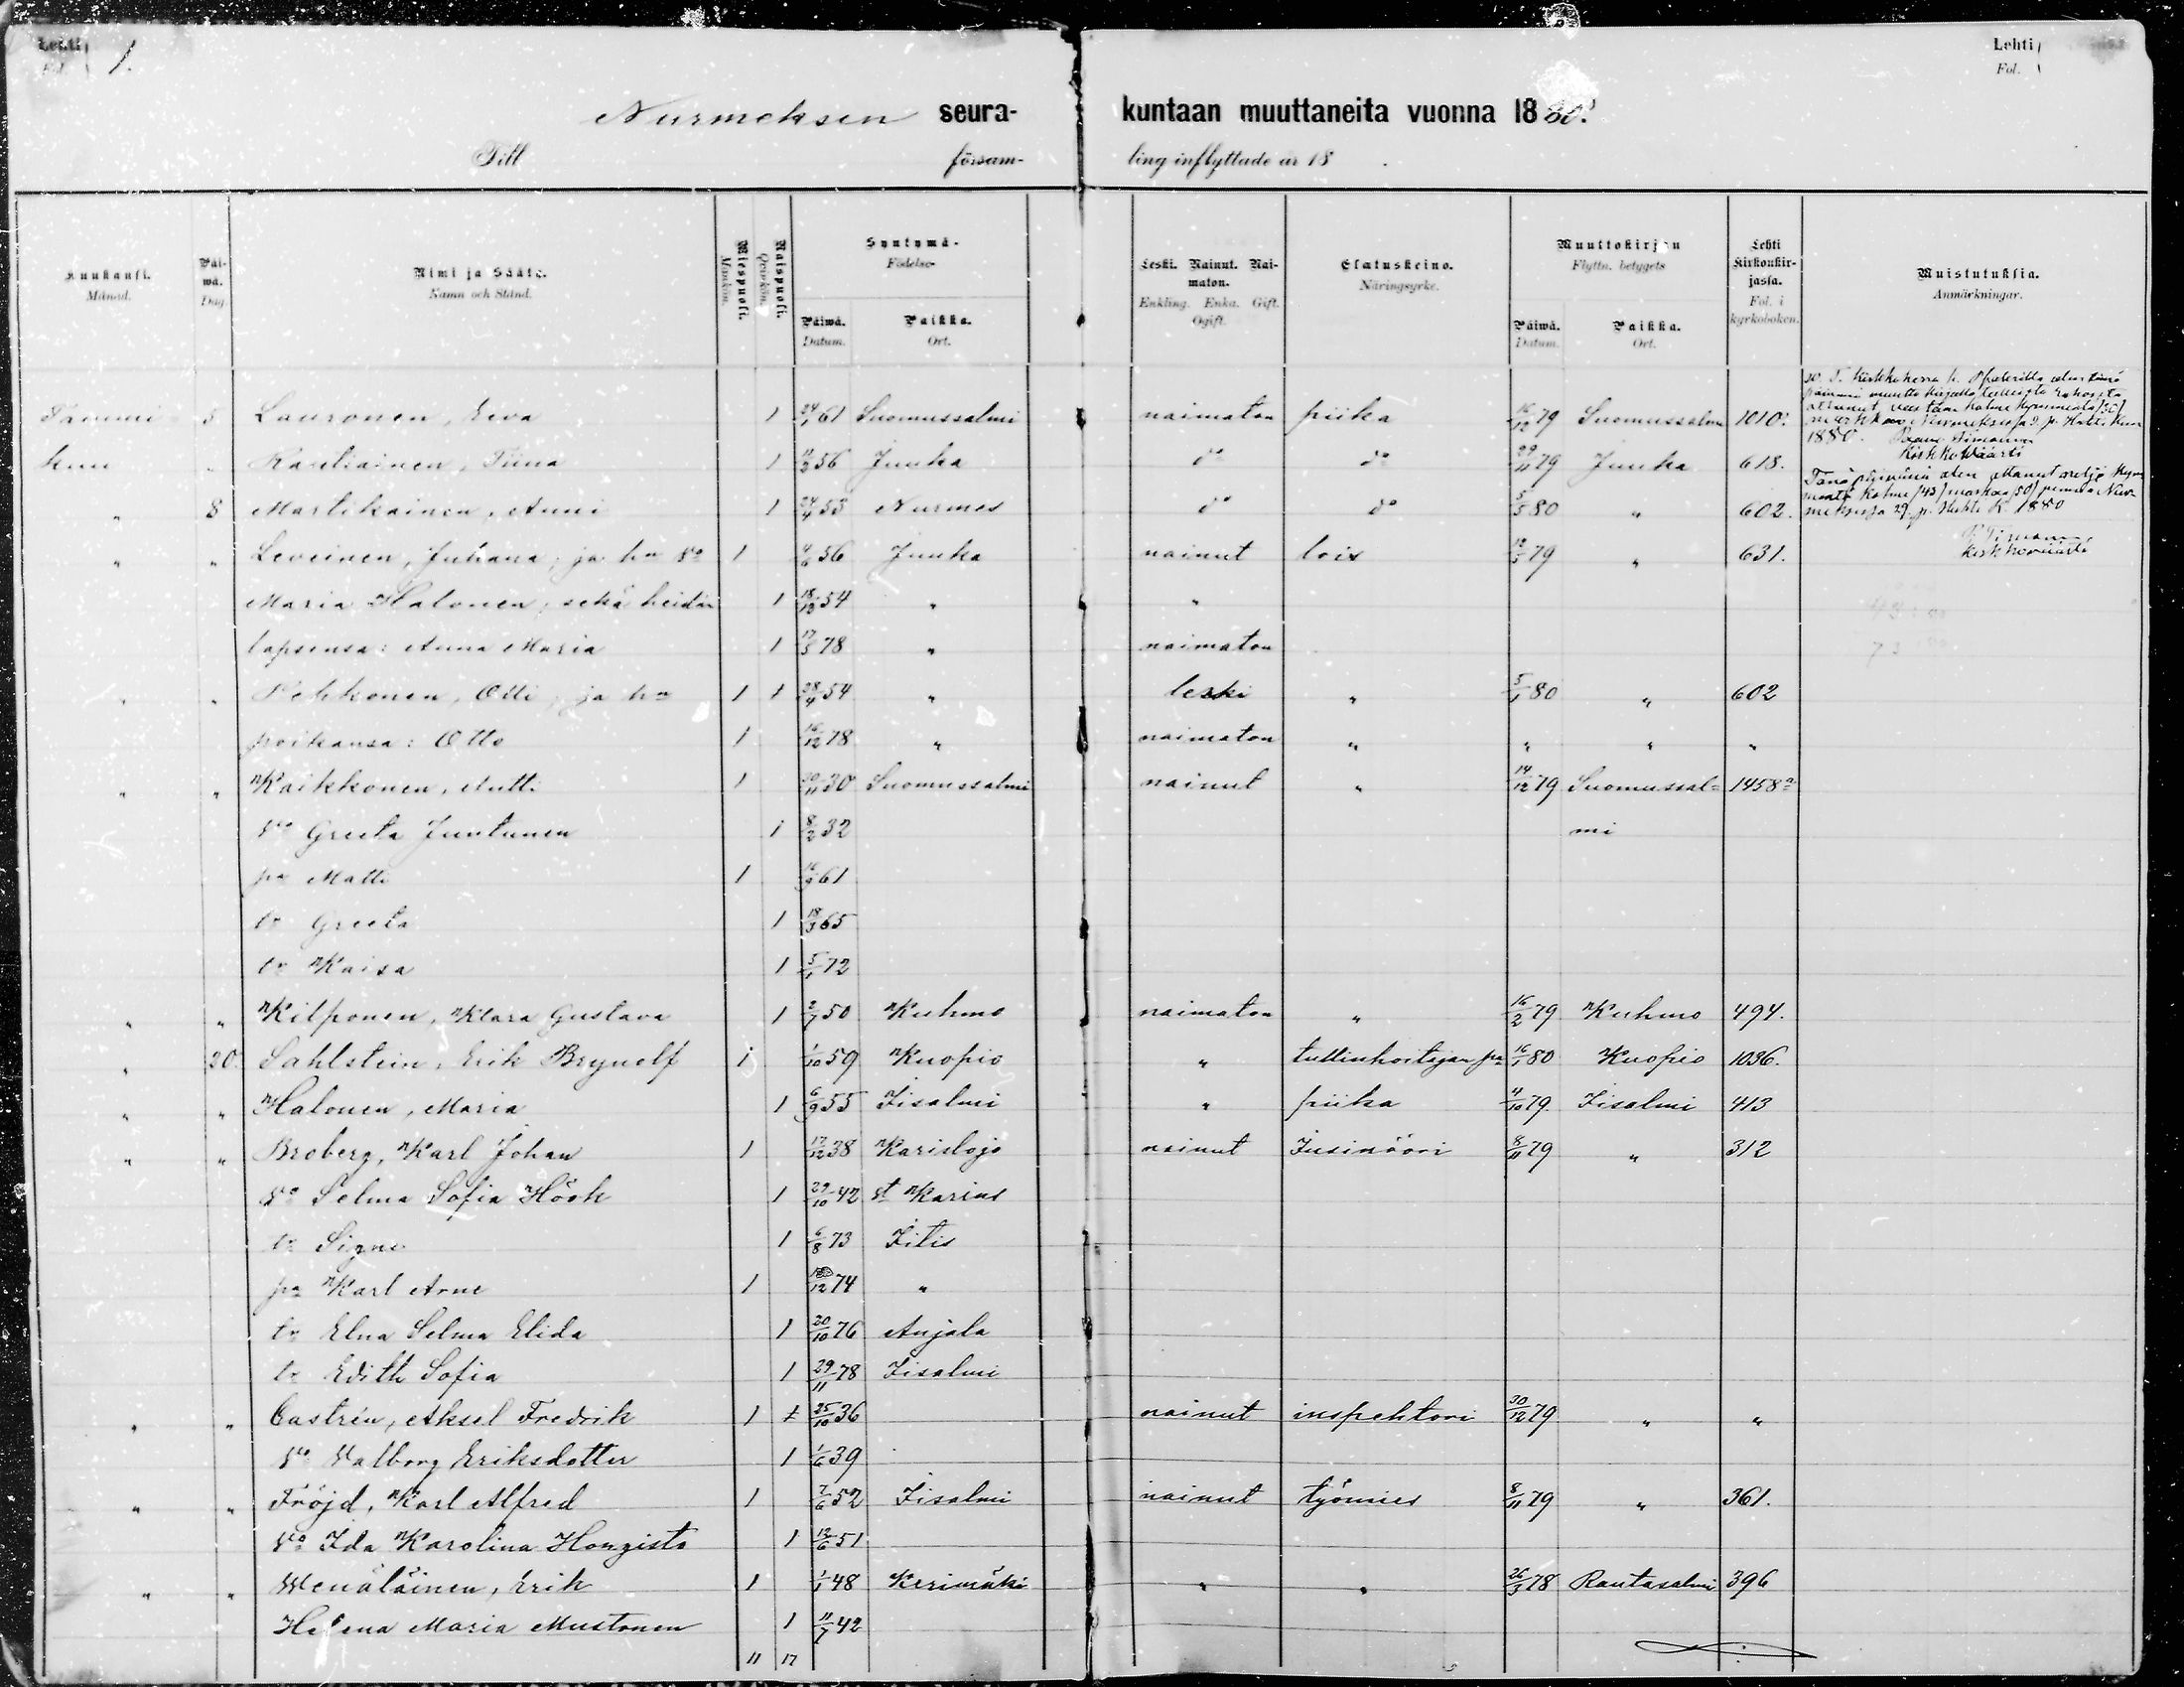 Lehti 1.
Lehti
Fol.
Nurmeksen seura- kuntaan muuttaneita vuonna 1880.
Till försam- ling inflyttade år 18 .
Kuukausi. Månad.
Päiwä. Dag.
Nimi ja Sääty. Namn och Stånd.
Miespuoli. Mankön.
Naispuoli. Qvinkön.
Syntymä- Födelse-
Päiwä. Datum. Paikka. Ort.
Leski. Nainut. Naimaton. Enkling. Enka. Gift. Ogift.
Elatuskeino. Näringsyrke.
Muuttokirjan Flyttn. betygets
Päiwä. Datum. Paikka. Ort.
Lehti Kirkonkirjassa. Fol. i kyrkoboken.
Muistutuksia. Anmärkningar.
Tammi- 5 Lauronen, Eeva 1 24/1 61 Suomussalmi naimaton piika 16/12 79 Suomussalmi 1010.
kuu " Rautiainen, Tiina 1 11/2 56 Juuka do do 29/11 79 Juuka 618.
" 8 Martikainen, Anni 1 24/4 53 Nurmes do do 5/5 80 " 602.
" " Leveinen, Juhana, ja hn vo 1 4/6 56 Juuka nainut lois 12/5 79 " 631.
Maria Halonen, sekä heidän 1 18/12 54 " "
lapsensa: Anna Maria 1 17/5 78 " naimaton
" " Pehkonen, Otti, ja hn 1 1 28/4 54 " leski " 5/1 80 " 602
poikansa: Otto 1 16/12 78 " naimaton " " " "
" " Kaikkonen, Antti 1 30/11 30 Suomussalmi nainut " 14/12 79 Suomussal= 1458a
vo Greeta Juntunen 1 8/2 32 mi
pa Matti 1 16/9 61
tr Greeta 1 18/3 65
tr Kaisa 1 5/1 72
" " Kilponen, Klara Gustava 1 2/7 50 Kuhmo naimaton " 16/2 79 Kuhmo 494.
" 20 Sahlstein, Erik Brynolf 1 1/10 59 Kuopio " tullinhoitajan pa 16/1 80 Kuopio 1036.
" " Halonen, Maria 1 6/9 55 Iisalmi " piika 4/10 79 Iisalmi 413
" " Broberg, Karl Johan 1 17/12 38 Karislojo nainut Insinööri 8/11 79 " 312
vo Selma Sofia Höök 1 29/10 42 st Karins
tr Signe 1 6/8 73 Iitis
pa Karl Arne 1 12 74 "
tr Elna Selma Elida 1 20/10 76 Anjala
tr Edith Sofia 1 29/11 78 Iisalmi
" " Castrén, Aksel Fredrik 1 25/10 36 nainut inspehtori 30/12 79 " "
vo Valborg Eriksdotter 1 1/6 39
" " Fröjd, Karl Alfred 1 7/6 52 Iisalmi nainut työmies 8/11 79 " 361.
vo Ida Karolina Hongisto 1 13/6 51
" " Wenäläinen, Erik 1 1/1 48 Kerimäki " " 26/3 78 Rantasalmi 396
Helena Maria Mustonen 1 11/7 42
11 17
1880.
Kirkkowäärti
1880
kirkkowäärti